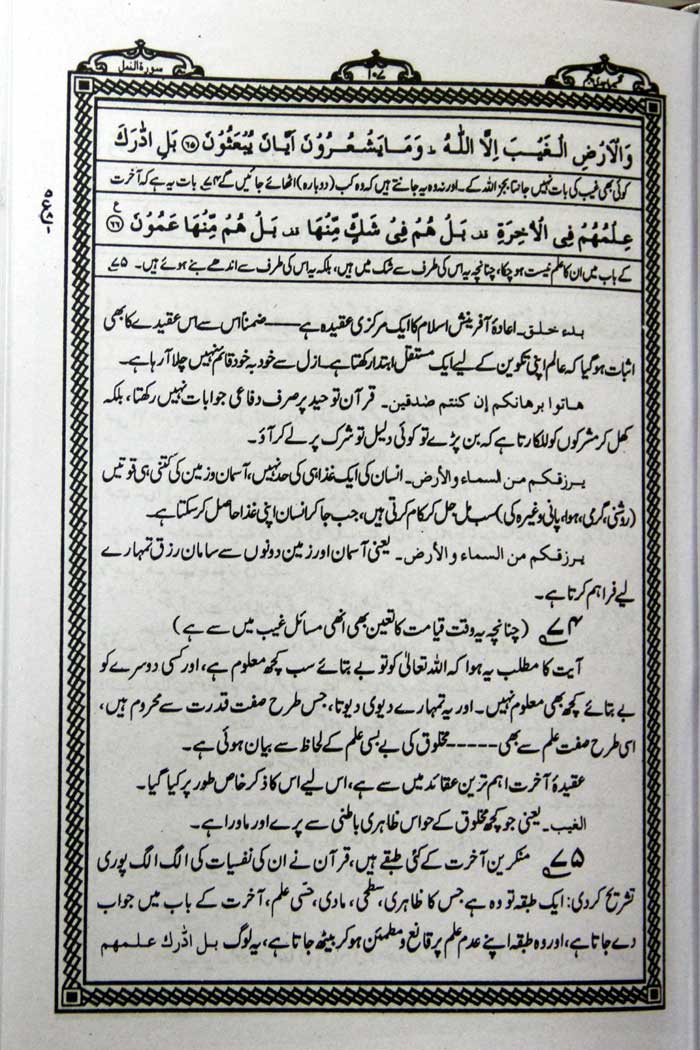 سورة النمل
۱۰۷
وَالْاَرْضِ الْغَيْبَ اِلَّا اللّٰهُ ؕ وَمَا يَشْعُرُوْنَ اَيَّانَ يُبْعَثُوْنَ ۶۵ بَلِ ادّٰرَكَ
کوئی بھی غیب کی بات نہیں جانتا بجز اللہ کے۔ اور نہ وہ یہ جانتے ہیں کہ وہ کب (دوبارہ) اٹھائے جائیں گے ۷۴ بات یہ ہے کہ آخرت
عِلْمُهُمْ فِى الْاٰخِرَةِ ۫ بَلْ هُمْ فِىْ شَكٍّ مِّنْهَا ۫ بَلْ هُمْ مِّنْهَا عَمُوْنَ ۶۶ ع
کے باب میں ان کا علم نیست ہو چکا، چنانچہ یہ اس کی طرف سے شک میں ہیں، بلکہ یہ اس کی طرف سے اندھے بنے ہوئے ہیں۔ ۷۵
بدء خلق۔ اعادۂ آفرینش اسلام کا ایک مرکزی عقیدہ ہے ——— ضمناً اس سے اس عقیدے کا بھی
اثبات ہو گیا کہ عالم اپنی تکوین کے لیے ایک مستقل ابتدا رکھتا ہے۔ ازل سے خود بہ خود قائم نہیں چلا آ رہا ہے۔
هاتوا برهانكم إن كنتم صٰدقين۔ قرآن توحید پر صرف دفاعی جوابات نہیں رکھتا، بلکہ
کھل کر مشرکوں کو للکارتا ہے کہ بن پڑے تو کوئی دلیل تو شرک پر لے کر آؤ۔
يرزقكم من السماء والأرض۔ انسان کی ایک غذا ہی کی حد نہیں، آسمان و زمین کی کتنی ہی قوتیں
(روشنی، گرمی، ہوا، پانی وغیرہ کی) سب مل جل کر کام کرتی ہیں، جب جا کر انسان اپنی غذا حاصل کر سکتا ہے۔
يرزقكم من السماء والأرض۔ یعنی آسمان اور زمین دونوں سے سامان رزق تمہارے
لیے فراہم کرتا ہے۔
۷۴ (چنانچہ یہ وقت قیامت کا تعین بھی انھی مسائل غیب میں سے ہے)
آیت کا مطلب یہ ہوا کہ اللہ تعالیٰ کو تو بے بتائے سب کچھ معلوم ہے، اور کسی دوسرے کو
بے بتائے کچھ بھی معلوم نہیں۔ اور یہ تمہارے دیوی دیوتا، جس طرح صفت قدرت سے محروم ہیں،
اسی طرح صفت علم سے بھی ----- مخلوق کی بے بسی علم کے لحاظ سے بیان ہوئی ہے۔
عقیدۂ آخرت اہم ترین عقائد میں سے ہے، اس لیے اس کا ذکر خاص طور پر کیا گیا۔
الغيب۔ یعنی جو کچھ مخلوق کے حواس ظاہری باطنی سے پرے اور ماورا ہے۔
۷۵ منکرین آخرت کے کئی طبقے ہیں، قرآن نے ان کی نفسیات کی الگ الگ پوری
تشریح کر دی: ایک طبقہ تو وہ ہے جس کا ظاہری، سطحی، مادی، حسّی علم، آخرت کے باب میں جواب
دے جاتا ہے، اور وہ طبقہ اپنے عدم علم پر قانع و مطمئن ہو کر بیٹھ جاتا ہے، یہ لوگ بل ادّٰرك علمهم